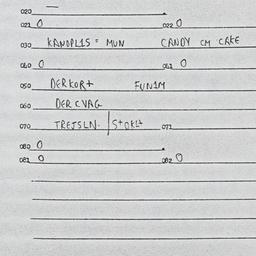 020 —
021 0 022 0
030 KANDPLIS = MUN CANDY CM CAKE
040 0 041 0
050 DERKORT FUNIM
060 DER CVAG
070 TREJSLN. | STOKLT 071
080 0
081 0 082 0